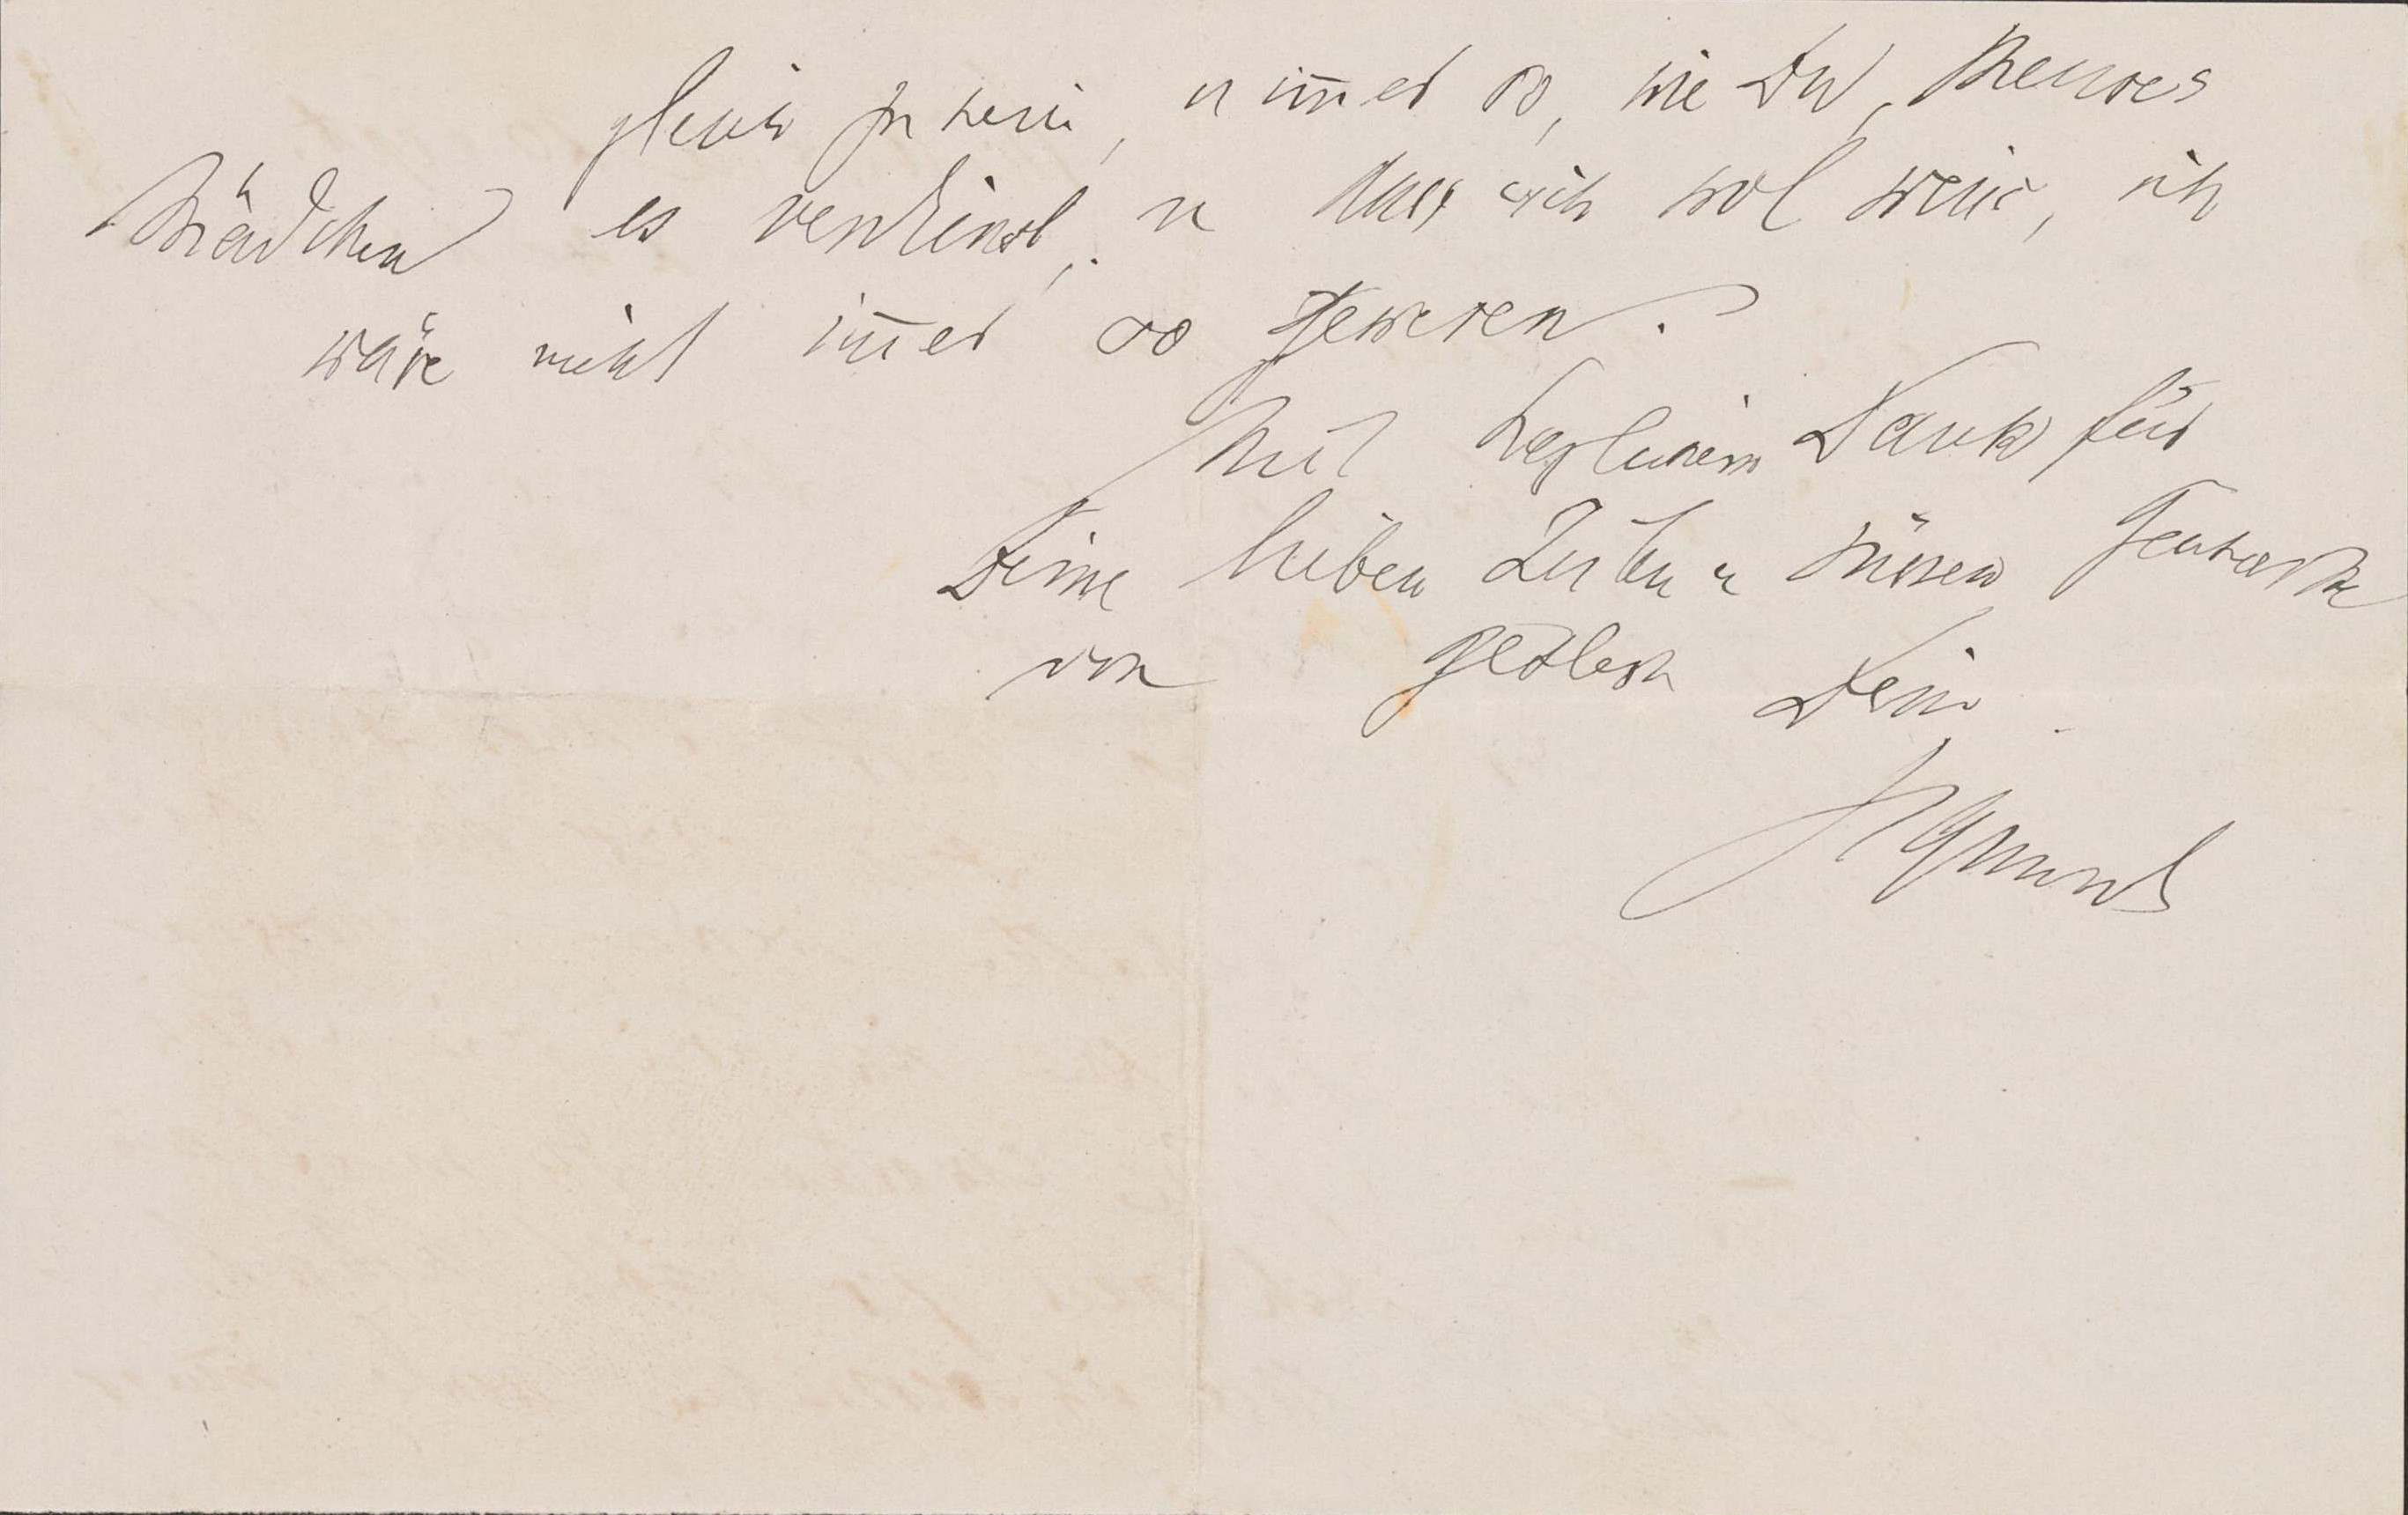 gleich zu sein, u im̄er so, wie Du, theures
Mädchen es verdienst, u dass ich wol weiß, ich
wäre nicht im̄er so gewesen.
Mit herzlichem Dank für
Deine lieben Zeilen u süssen Geschenke
von Dein
Sigmund